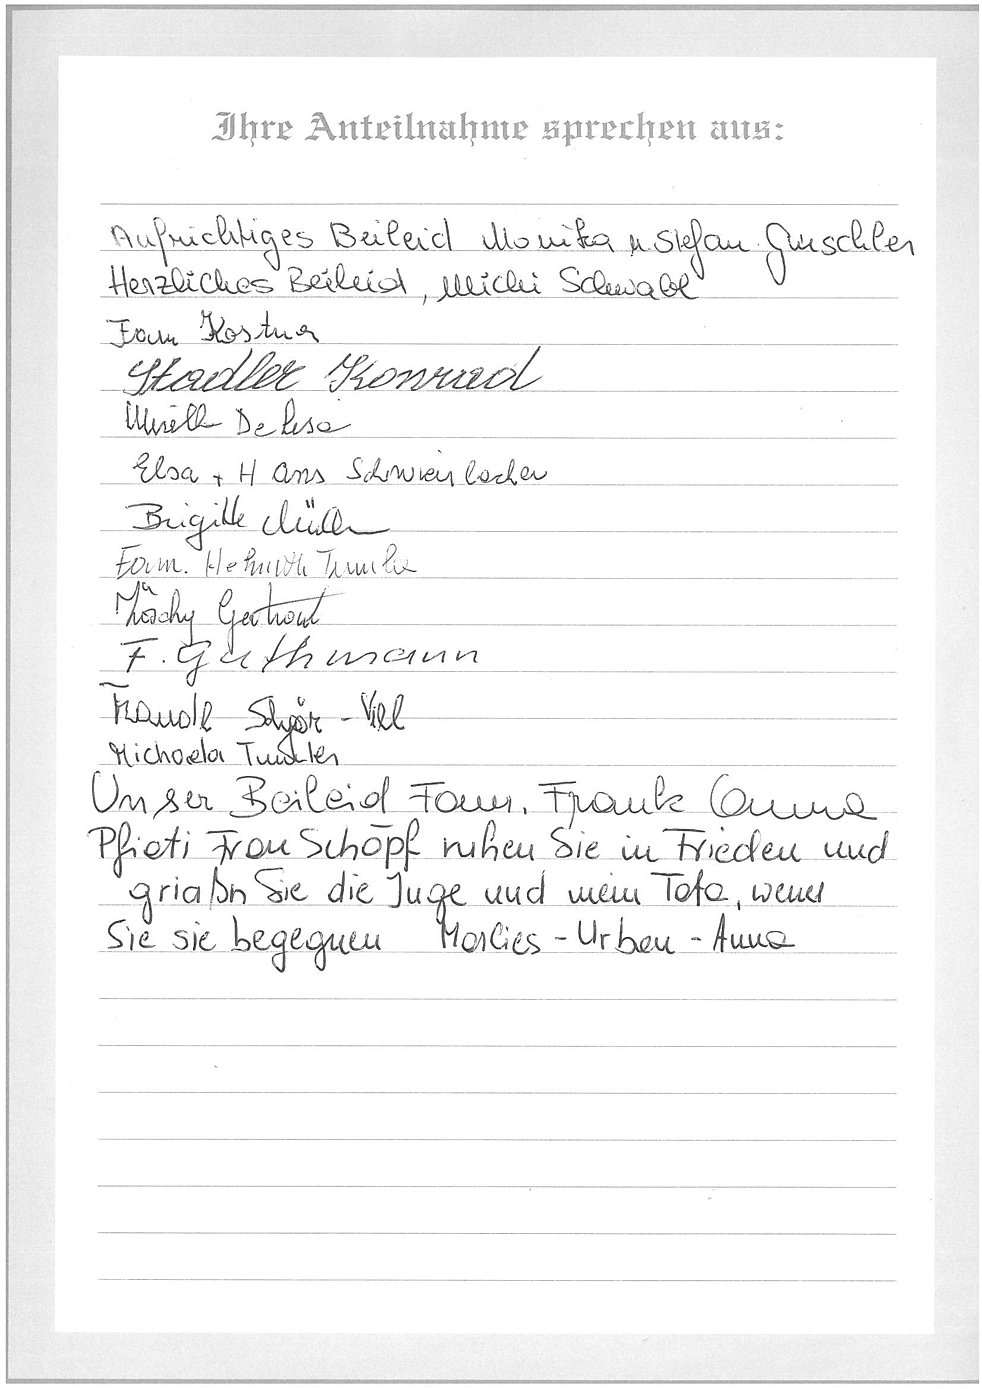 Ihre Anteilnahme sprechen aus:
Aufrichtiges Beileid Monika u. Stefan Gurschler
Herzliches Beileid, Michi Schwabl
Fam Kostner
Stadler Konrad
De
Elsa + Hans
Brigitte Müller
Fam. Helmuth
Gertraud
F. Guthmann
Traudl
Michaela Tumler
Unser Beileid Fam. Frank Anna
Pfieti Frau Schöpf ruhen Sie in Frieden und
griaßn Sie die Inge und mein Tata, wenn
Sie sie begegnen Marlies - Urban - Anna